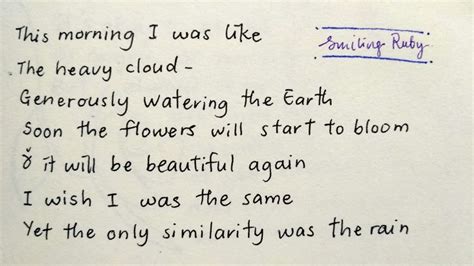 This morning I was like
Smiling Ruby
The heavy cloud -
Generously watering the Earth
Soon the flowers will start to bloom
& it will be beautiful again
I wish I was the same
Yet the only similarity was the rain